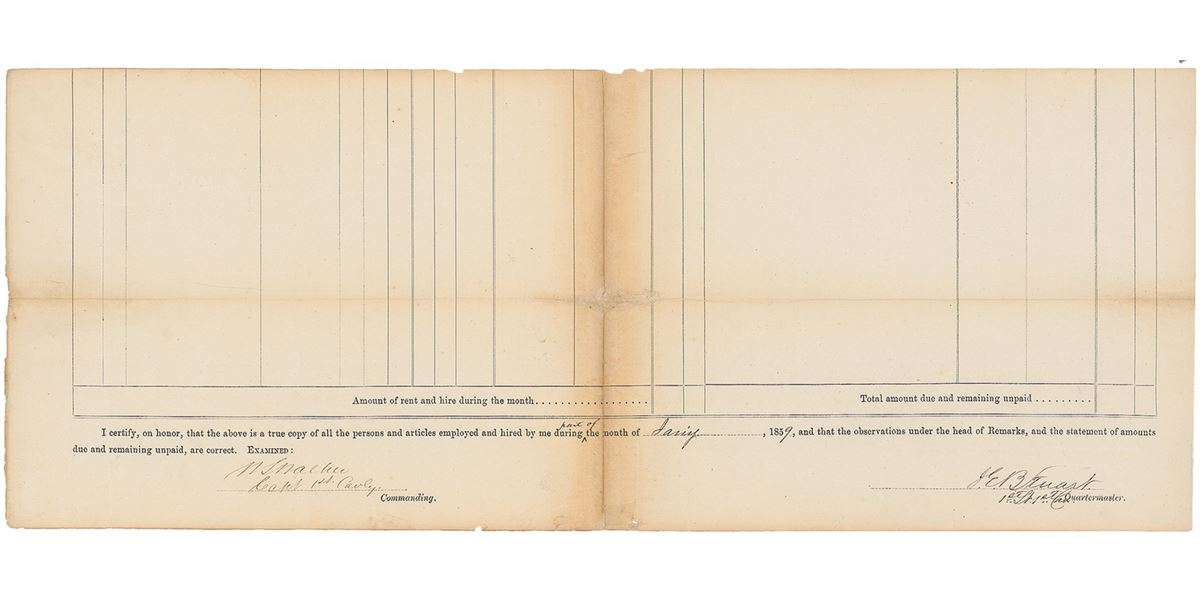 Amount of rent and hire during the month....................
Total amount due and remaining unpaid .........
part of
I certify, on honor, that the above is a true copy of all the persons and articles employed and hired by me during ‸ the month of Jan'y, 1859, and that the observations under the head of Remarks, and the statement of amounts
due and remaining unpaid, are correct. EXAMINED:
W S Walker
Capt 1st. Cavly.
Commanding.
J.E.B Stuart
1st Lt. 1st Cav. Quartermaster.